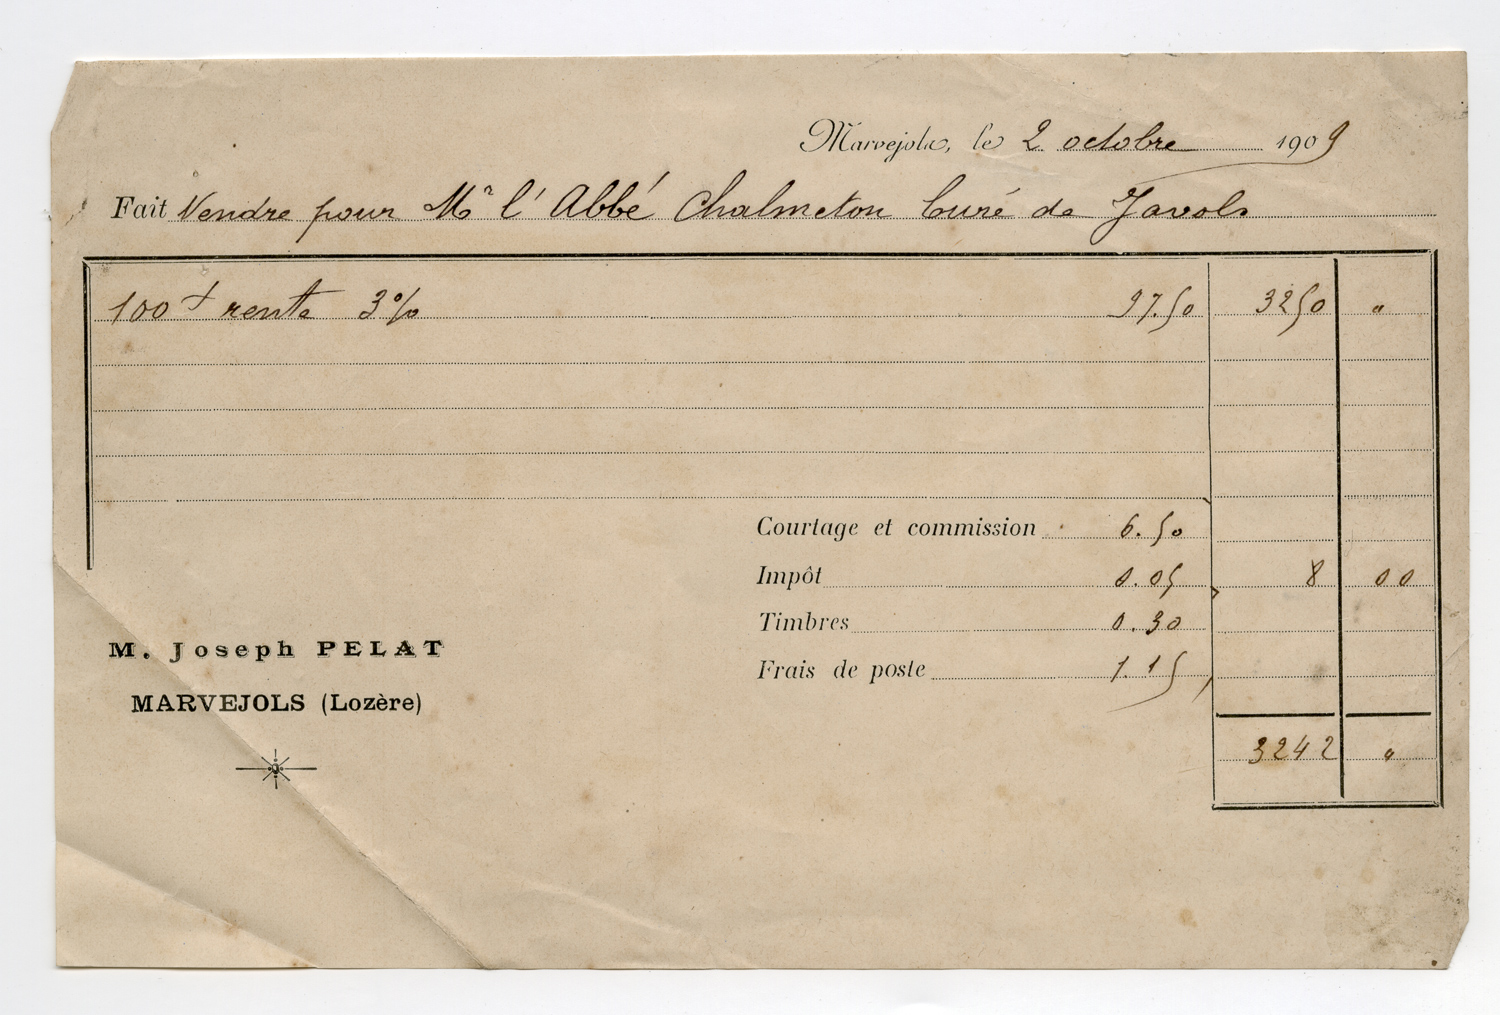 Marvejols, le 2 octobre 1909
Fait Vendre pour Mr l'Abbé Chalmeton Curé de Javols
100 f rente 3% 97.50 3250 "
Courtage et commission 6.50
Impôt 0.05 8 00
Timbres 0.30
Frais de poste 1.15
M. Joseph PELAT
MARVEJOLS (Lozère)
3242 "